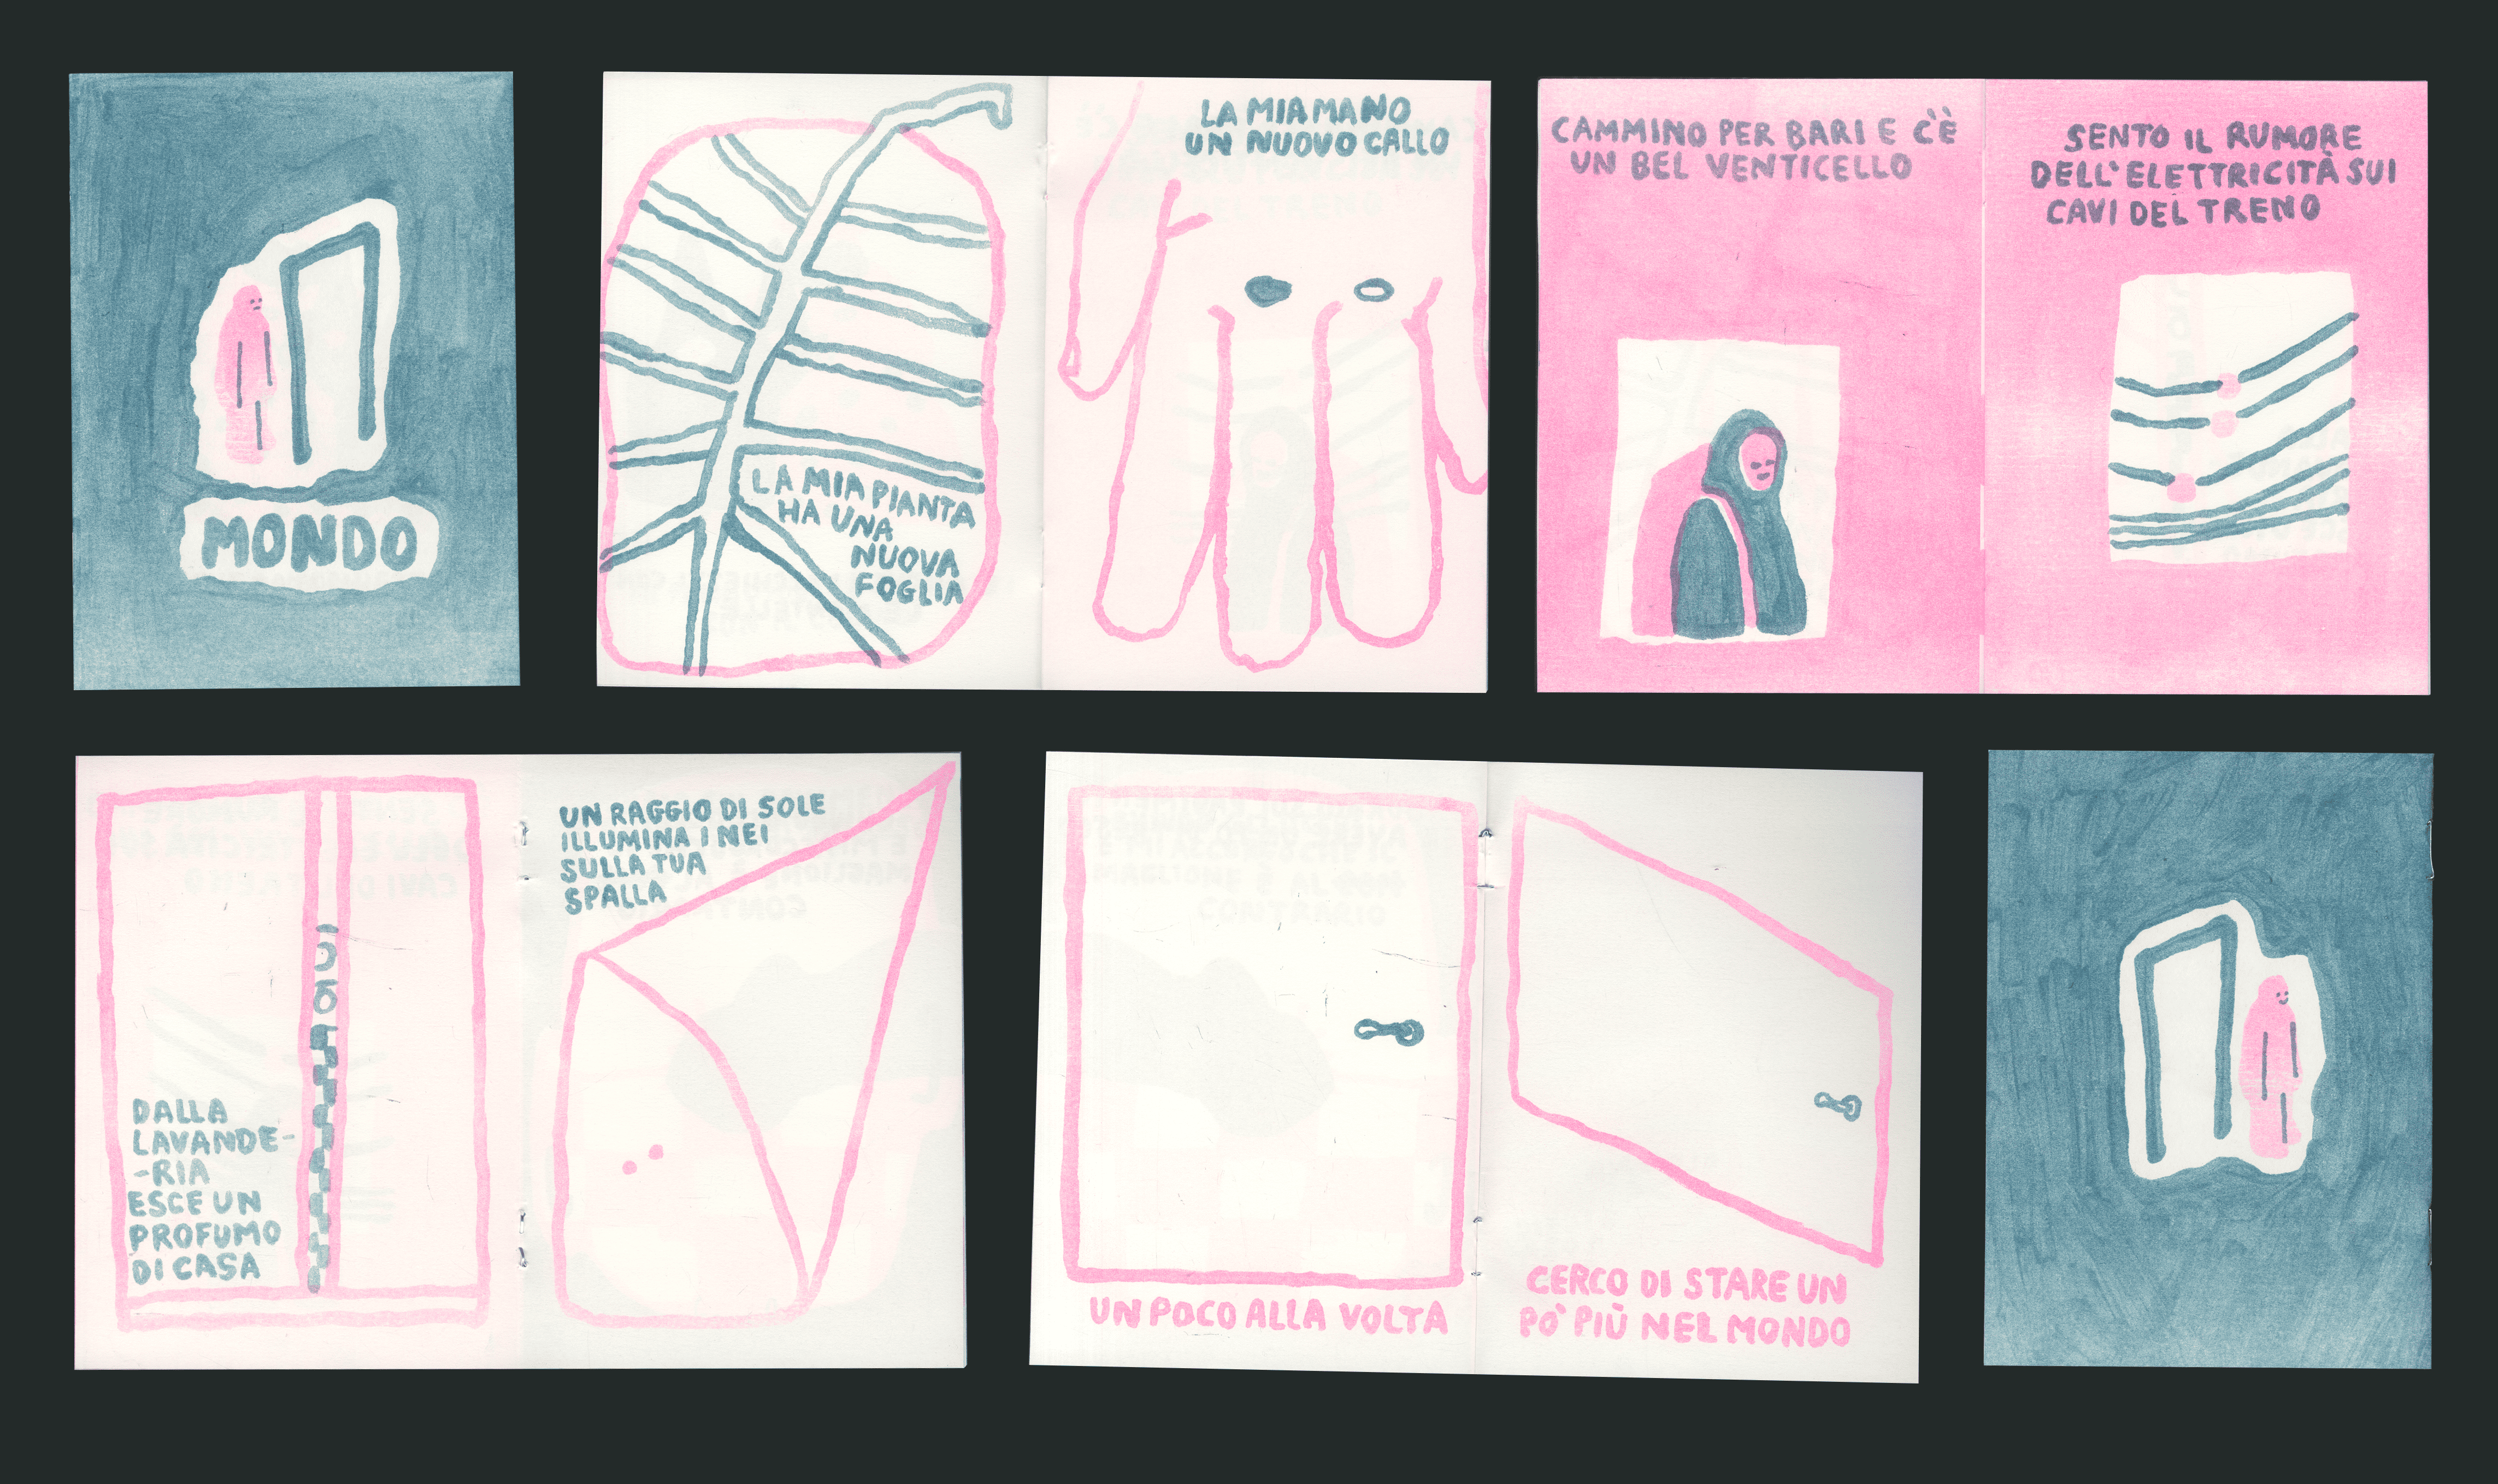 MONDO
LA MIA PIANTA
HA UNA
NUOVA
FOGLIA
LA MIA MANO
UN NUOVO CALLO
CAMMINO PER BARI E C'È
UN BEL VENTICELLO
SENTO IL RUMORE
DELL'ELETTRICITÀ SUI
CAVI DEL TRENO
DALLA
LAVANDE-
-RIA
ESCE UN
PROFUMO
DI CASA
UN RAGGIO DI SOLE
ILLUMINA I NEI
SULLA TUA
SPALLA
UN POCO ALLA VOLTA
CERCO DI STARE UN
PO' PIÙ NEL MONDO